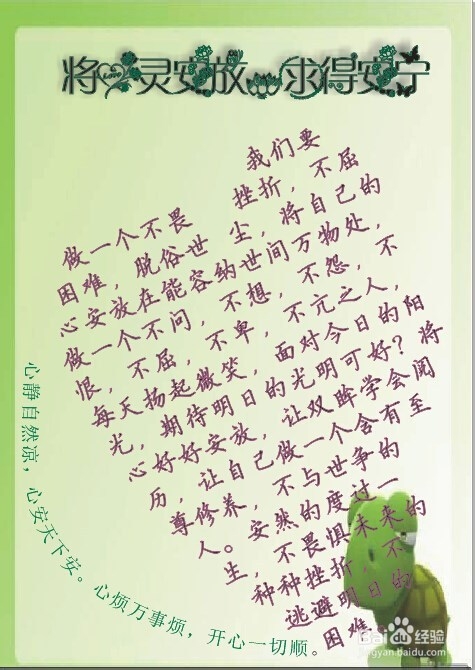 将心灵安放 求得安宁
我们要
做一个不畏 挫折，不屈
困难，脱俗世 尘，将自己的
心安放在能容纳世间万物处，
做一个不问，不想，不怨，不
恨，不屈，不卑，不亢之人，
每天扬起微笑，面对今日的阳
光，期待明日的光明可好？将
心好好安放，让双眸学会阅
历，让自己做一个含有至
尊修养，不与世争的
人。安然的度过一
生，不畏惧未来的
种种挫折，不
逃避明日的
困难。
心静自然凉，心安天下安。心烦万事烦，开心一切顺。
Baidu经验
jingyan.baidu.com